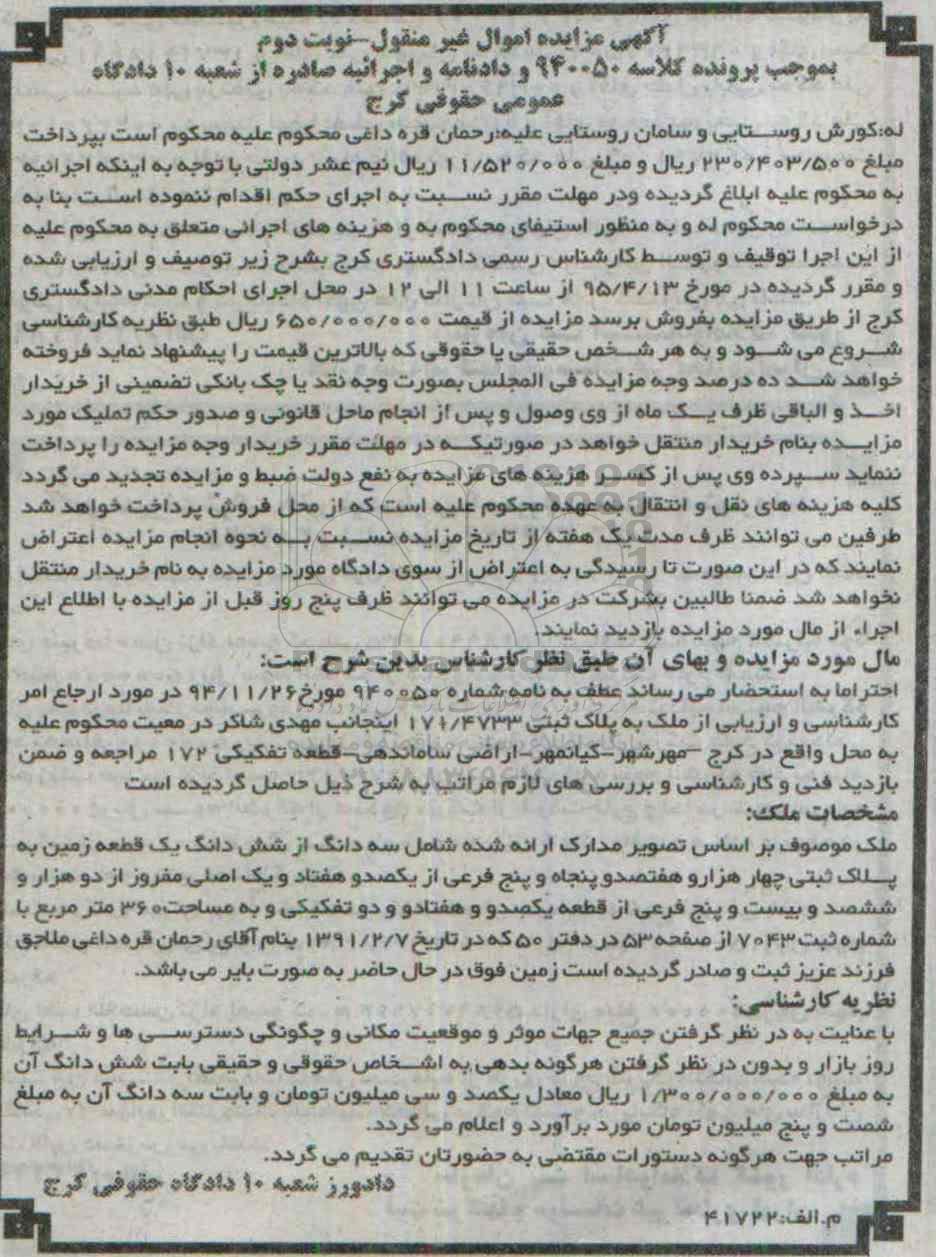 آگهی مزایده اموال غیر منقول-نوبت دوم
بموجب پرونده کلاسه ۹۴۰۰۵۰ و دادنامه و اجرائیه صادره از شعبه ۱۰ دادگاه
عمومی حقوقی کرج
له:کورش روستایی و سامان روستایی علیه:رحمان قره داغی محکوم علیه محکوم است بپرداخت
مبلغ ۲۳۰/۴۰۳/۵۰۰ ریال و مبلغ ۱۱/۵۲۰/۰۰۰ ریال نیم عشر دولتی با توجه به اینکه اجرائیه
به محکوم علیه ابلاغ گردیده ودر مهلت مقرر نسبت به اجرای حکم اقدام ننموده است بنا به
درخواست محکوم له و به منظور استیفای محکوم به و هزینه های اجرائی متعلق به محکوم علیه
از این اجرا توقیف و توسط کارشناس رسمی دادگستری کرج بشرح زیر توصیف و ارزیابی شده
و مقرر گردیده در مورخ ۹۵/۴/۱۳ از ساعت ۱۱ الی ۱۲ در محل اجرای احکام مدنی دادگستری
کرج از طریق مزایده بفروش برسد مزایده از قیمت ۶۵۰/۰۰۰/۰۰۰ ریال طبق نظریه کارشناسی
شروع می شود و به هر شخص حقیقی یا حقوقی که بالاترین قیمت را پیشنهاد نماید فروخته
خواهد شد ده درصد وجه مزایده فی المجلس بصورت وجه نقد یا چک بانکی تضمینی از خریدار
اخذ و الباقی ظرف یک ماه از وی وصول و پس از انجام ماحل قانونی و صدور حکم تملیک مورد
مزایده بنام خریدار منتقل خواهد در صورتیکه در مهلت مقرر خریدار وجه مزایده را پرداخت
ننماید سپرده وی پس از کسر هزینه های مزایده به نفع دولت ضبط و مزایده تجدید می گردد
کلیه هزینه های نقل و انتقال به عهده محکوم علیه است که از محل فروش پرداخت خواهد شد
طرفین می توانند ظرف مدت یک هفته از تاریخ مزایده نسبت به نحوه انجام مزایده اعتراض
نمایند که در این صورت تا رسیدگی به اعتراض از سوی دادگاه مورد مزایده به نام خریدار منتقل
نخواهد شد ضمنا طالبین بشرکت در مزایده می توانند ظرف پنج روز قبل از مزایده با اطلاع این
اجراء از مال مورد مزایده بازدید نمایند.
مال مورد مزایده و بهای آن طبق نظر کارشناس بدین شرح است:
احتراما به استحضار می رساند عطف به نامه شماره ۹۴۰۰۵۰ مورخ ۹۴/۱۱/۲۶ در مورد ارجاع امر
کارشناسی و ارزیابی از ملک به پلاک ثبتی ۱۷۱/۴۷۳۳ اینجانب مهدی شاکر در معیت محکوم علیه
به محل واقع در کرج -مهرشهر-کیانمهر-اراضی ساماندهی-قطعه تفکیکی ۱۷۲ مراجعه و ضمن
بازدید فنی و کارشناسی و بررسی های لازم مراتب به شرح ذیل حاصل گردیده است
مشخصات ملک:
ملک موصوف بر اساس تصویر مدارک ارائه شده شامل سه دانگ از شش دانگ یک قطعه زمین به
پلاک ثبتی چهار هزارو هفتصدو پنجاه و پنج فرعی از یکصدو هفتاد و یک اصلی مفروز از دو هزار و
ششصد و بیست و پنج فرعی از قطعه یکصدو و هفتادو و دو تفکیکی و به مساحت ۳۶۰ متر مربع با
شماره ثبت ۷۰۴۳ از صفحه ۵۳ در دفتر ۵۰ که در تاریخ ۱۳۹۱/۲/۷ بنام آقای رحمان قره داغی ملاجق
فرزند عزیز ثبت و صادر گردیده است زمین فوق در حال حاضر به صورت بایر می باشد.
نظریه کارشناسی:
با عنایت به در نظر گرفتن جمیع جهات موثر و موقعیت مکانی و چگونگی دسترسی ها و شرایط
روز بازار و بدون در نظر گرفتن هرگونه بدهی به اشخاص حقوقی و حقیقی بابت شش دانگ آن
به مبلغ ۱/۳۰۰/۰۰۰/۰۰۰ ریال معادل یکصد و سی میلیون تومان و بابت سه دانگ آن به مبلغ
شصت و پنج میلیون تومان مورد برآورد و اعلام می گردد.
مراتب جهت هرگونه دستورات مقتضی به حضورتان تقدیم می گردد.
دادورز شعبه ۱۰ دادگاه حقوقی کرج
م.الف:۴۱۷۲۲